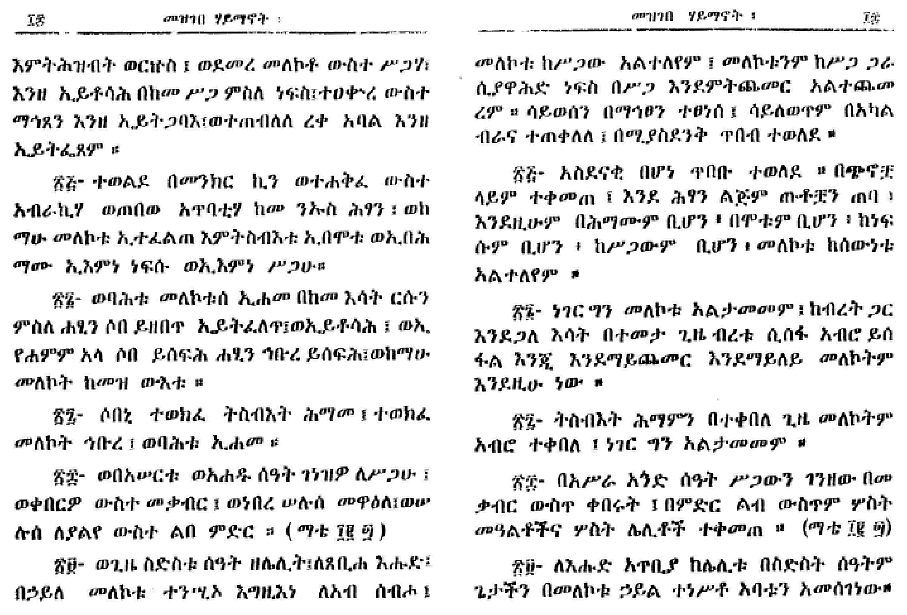 ፲፭ መዝገበ ሃይማኖት ፡
እምትሕዝብት ወርኵስ ፤ ወደመረ መለኮቶ ውስተ ሥጋሃ፡
እንዘ ኢይቶሳሕ በከመ ሥጋ ምስለ ነፍስ፤ተፀውረ ውስተ
ማኅጸን እንዘ ኢይትጋባእ፤ወተጠብለለ ረቀ አባል እንዘ
ኢይትፈጸም ።
፳፭- ተወልደ በመንክር ኪን ወተሐቅፈ ውስተ
አብራኪሃ ወጠበወ አጥባቲሃ ከመ ንኡስ ሕፃን ፤ ወከ
ማሁ መለኮቱ ኢተፈልጠ እምትስብእቱ ኢበሞቱ ወኢበሕ
ማሙ ኢእምነ ነፍሱ ወኢእምነ ሥጋሁ።
፳፮- ወባሕቱ መለኮቱሰ ኢሐመ በከመ እሳት ርሱን
ምስለ ሐፂን ሶበ ይዘበጥ ኢይትፈለጥ፤ወኢይቶሳሕ ፤ ወኢ
የሐምም አላ ሶበ ይሰፍሕ ሐፂን ኅቡረ ይሰፍሕ፤ወከማሁ
መለኮት ከመዝ ውእቱ ።
፳፯- ሶበኒ ተወክፈ ትስብእት ሕማመ ፤ ተወክፈ
መለኮት ኅቡረ ፤ ወባሕቱ ኢሐመ ።
፳፰- ወበአሠርቱ ወአሐዱ ሰዓት ገነዝዎ ለሥጋሁ ፤
ወቀበርዎ ውስተ መቃብር ፤ ወነበረ ሠሉሰ መዋዕለ፤ወሠ
ሉሰ ለያልየ ውስተ ልበ ምድር ። ( ማቴ ፲፪ ፵ )
፳፱- ወጊዜ ስድስቱ ሰዓት ዘሌሊት፤ለጸቢሐ እሑድ፤
በኃይለ መለኮቱ ተንሢኦ እግዚእነ ለአብ ሰብሖ ፤
መዝገበ ሃይማኖት ፤ ፲፭
መለኮቱ ከሥጋው አልተለየም ፤ መለኮቱንም ከሥጋ ጋራ
ሲያዋሕድ ነፍስ በሥጋ እንደምትጨመር አልተጨመ
ረም ። ሳይወሰን በማኅፀን ተፀነሰ ፤ ሳይለወጥም በአካል
ብራና ተጠቀለለ ፤ በሚያስደንቅ ጥበብ ተወለደ ።
፳፭- አስደናቂ በሆነ ጥበቡ ተወለደ ። በጭኖቿ
ላይም ተቀመጠ ፤ እንደ ሕፃን ልጅም ጡቶቿን ጠባ ፤
እንደዚሁም በሕማሙም ቢሆን ፡ በሞቱም ቢሆን ፡ ከነፍ
ሱም ቢሆን ፡ ከሥጋውም ቢሆን ፡ መለኮቱ ከሰውነቱ
አልተለየም ።
፳፮- ነገር ግን መለኮቱ አልታመመም ፤ ከብረት ጋር
እንደጋለ እሳት በተመታ ጊዜ ብረቱ ሲሰፋ አብሮ ይሰ
ፋል እንጂ እንደማይጨመር እንደማይለይ መለኮትም
እንደዚሁ ነው ።
፳፯- ትስብእት ሕማምን በተቀበለ ጊዜ መለኮትም
አብሮ ተቀበለ ፤ ነገር ግን አልታመመም ።
፳፰- በአሥራ አንድ ሰዓት ሥጋውን ገንዘው በመ
ቃብር ውስጥ ቀበሩት ፤ በምድር ልብ ውስጥም ሦስት
መዓልቶችና ሦስት ሌሊቶች ተቀመጠ ። (ማቴ ፲፪ ፵)
፳፱- ለእሑድ አጥቢያ ከሌሊቱ በስድስት ሰዓትም
ጌታችን በመለኮቱ ኃይል ተነሥቶ አባቱን አመሰገነው።